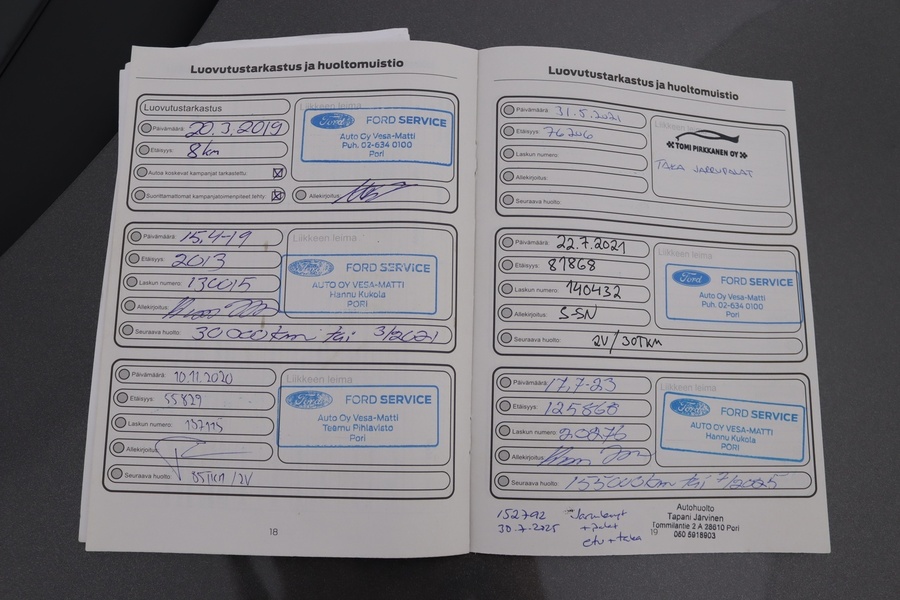 Luovutustarkastus ja huoltomuistio
Luovutustarkastus
Päivämäärä: 20.3.2019
Etäisyys: 8 km
Autoa koskevat kampanjat tarkastettu
Suorittamattomat kampanjatoimenpiteet tehty
Liikkeen leima
Ford FORD SERVICE
Auto Oy Vesa-Matti
Puh. 02-634 0100
Pori
Allekirjoitus:
Päivämäärä: 15.4-19
Etäisyys: 2013
Laskun numero: 130015
Allekirjoitus:
Seuraava huolto: 30 000 km tai 3/2021
Liikkeen leima
Ford FORD SERVICE
AUTO OY VESA-MATTI
Hannu Kukola
PORI
Päivämäärä: 10.11.2020
Etäisyys: 55829
Laskun numero: 137115
Allekirjoitus:
Seuraava huolto: 85TKM /2V
Liikkeen leima
Ford FORD SERVICE
Auto Oy Vesa-Matti
Teemu Pihlavisto
Pori
18
Luovutustarkastus ja huoltomuistio
Päivämäärä: 31.5.2021
Etäisyys: 76206
Laskun numero:
Allekirjoitus:
Seuraava huolto:
Liikkeen leima
TOMI PIRKKANEN OY
TAKA JARRUPALAT
Päivämäärä: 22.7.2021
Etäisyys: 87868
Laskun numero: 140432
Allekirjoitus: S-SN
Seuraava huolto: 2V/30TKM
Liikkeen leima
Ford FORD SERVICE
Auto Oy Vesa-Matti
Puh. 02-634 0100
Pori
Päivämäärä: 17.7-23
Etäisyys: 125860
Laskun numero: 20876
Allekirjoitus:
Seuraava huolto: 155000km tai 7/2025
Liikkeen leima
Ford FORD SERVICE
AUTO OY VESA-MATTI
Hannu Kukola
PORI
152792
30.7-2025
+ palat
etu + taka
Autohuolto
Tapani Järvinen
Tommilantie 2 A 28610 Pori
050 5918903
19